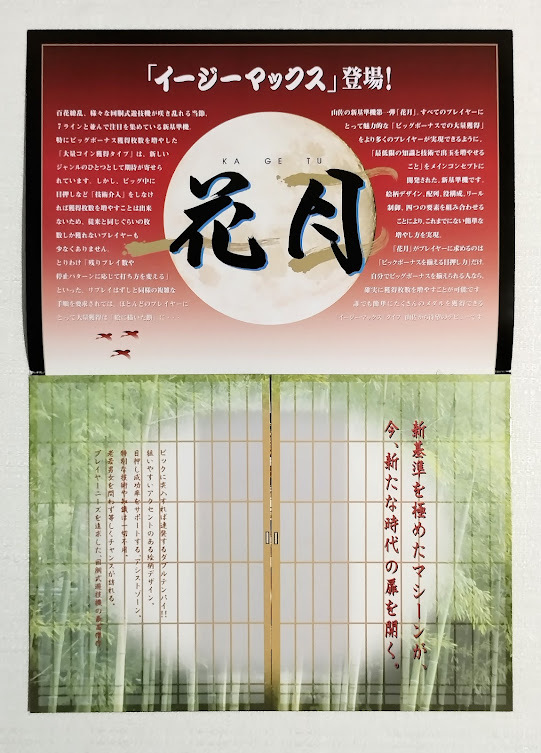 「イージーマックス」登場!
百花繚乱、様々な回胴式遊技機が咲き乱れる当節、
7ラインと並んで注目を集めている新基準機。
特にビッグボーナス獲得枚数を増やした
「大量コイン獲得タイプ」は、新しい
ジャンルのひとつとして期待が寄せら
れています。しかし、ビッグ中に
目押しなど「技術介入」をしなけ
れば獲得枚数を増やすことは出来
ないため、従来と同じぐらいの枚
数しか獲れないプレイヤーも
少なくありません。
とりわけ「残りプレイ数や
停止パターンに応じて打ち方を変える」
といった、リプレイはずしと同様の複雑な
手順を要求されては、ほとんどのプレイヤーに
とって大量獲得は「絵に描いた餅」に…。
KA GE TU
花月
山佐の新基準機第一弾「花月」。すべてのプレイヤーに
とって魅力的な「ビッグボーナスでの大量獲得」
をより多くのプレイヤーが実現できるように、
「最低限の知識と技術で出玉を増やせる
こと」をメインコンセプトに
開発された、新基準機です。
絵柄デザイン、配列、役構成、リール
制御、四つの要素を組み合わせる
ことにより、これまでにない簡単な
増やし方を実現。
「花月」がプレイヤーに求めるのは
「ビッグボーナスを揃える目押し力」だけ。
自分でビッグボーナスを揃えられる人なら、
確実に獲得枚数を増やすことが可能です。
誰でも簡単にたくさんのメダルを獲得できる
新基準を極めたマシーンが、
今、新たな時代の扉を開く。
ビッグに突入すれば連発するダブルテンパイ!!
狙いやすいアクセントのある絵柄デザイン。
目押し成功率をサポートする「アシストゾーン」。
特別な技術や知識は一切不用。
老若男女を問わず等しくチャンスが訪れる。